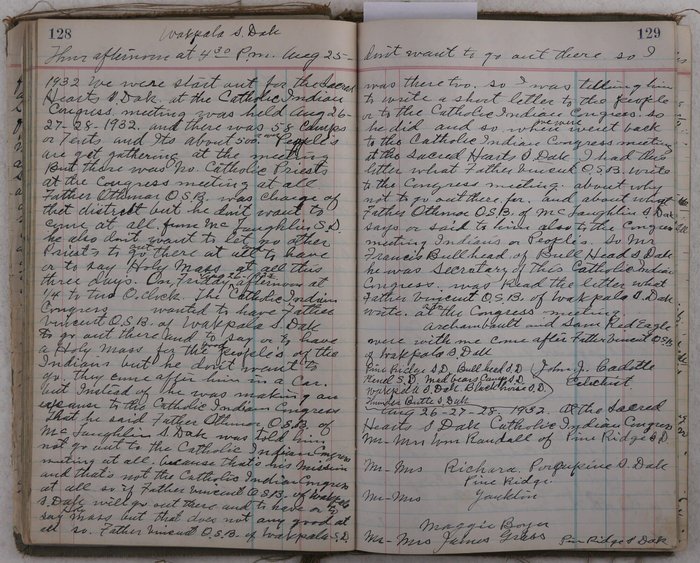 128
Wakpala S. Dak
Thur afternoon at 4 30 P.m. Aug 25-
1932 We were start out for the Sacred
Hearts S Dak at the Catholic Indian
Congress, meeting was held Aug 26-
27-28-1932, and there was 58 Camps
or Tents and Its about 500 over People's
are got gathering at the meeting
But there was No. Catholic Priests
at the Congress meeting at all
Father Othmar O.S.B. was charge of
that district but he don't want to
come at all from McLaughlin S.D.
he also don't want to let go other
Priests to go there at all to have
or to say Holy Mass at all this
three days. On Friday Aug 26-1932 afternoon at
1/4 to two O.clock. The Catholic Indian
Congress wanted to have Father
Vincent O.S.B. of Wakpala S Dak
to go out there and to say or to have
a Holy Mass for the People's of the
Indians but he don't want to
go. they come after him in a car.
but Instead of he was making an
excuse to the Catholic Indian Congress
that he said Father Othmar O.S.B. of
McLaughlin S Dak was told him
not go out to the Catholic Indian Congress
meeting at all. because that's his Mission
and that's not the Catholic Indian Congress
at all so if Father Vincent O.S.B. of Wakpala
S. Dak will go out there and to have or to
say Holy Mass but that does not any good at
all so. Father Vincent O.S.B. of Wakpala S.D.
129
don't want to go out there so I
was there too. so I was telling him
to write a short letter to the people
or to the Catholic Indian Congress. so
he did and so when we went back
to the Catholic Indian Congress meeting
at the Sacred Hearts S Dak I had this
letter what Father Vincent O.S.B. write
to the Congress meeting. about why
not to go out there for. and about what
Father Othmar O.S.B. of McLaughlin S Dak
says or said to him also to the Congress
meeting Indians or Peoples. So Mr
Francis Bullhead of Bull Head S Dak
he was Secretary of this Catholic Indian
Congress was read the letter what
Father Vincent O.S.B. of Wakpala S. Dak
write. at the Congress meeting
Archambault and Sam Red Eagle
were with me come after Father Vincent O.S.B
of Wakpala S. Dak
Pine Ridge S.D. Bull head S.D.
Kenel S.D. Mad bears Camp S.D.
Wakpala S. Dak Black horse S.D.
Thunder Butte S. Dak
John J. Cadotte
Catechist
Aug 26-27-28, 1932. At the Sacred
Hearts S Dak Catholic Indian Congress
Mr- Mrs Wm Randall of Pine Ridge S D
Mr- Mrs Richard, Porcupine S. Dak
Pine Ridge.
Mr- Mrs Yankton
Maggie Boyer
Mr- Mrs James Grass Pine Ridge S Dak